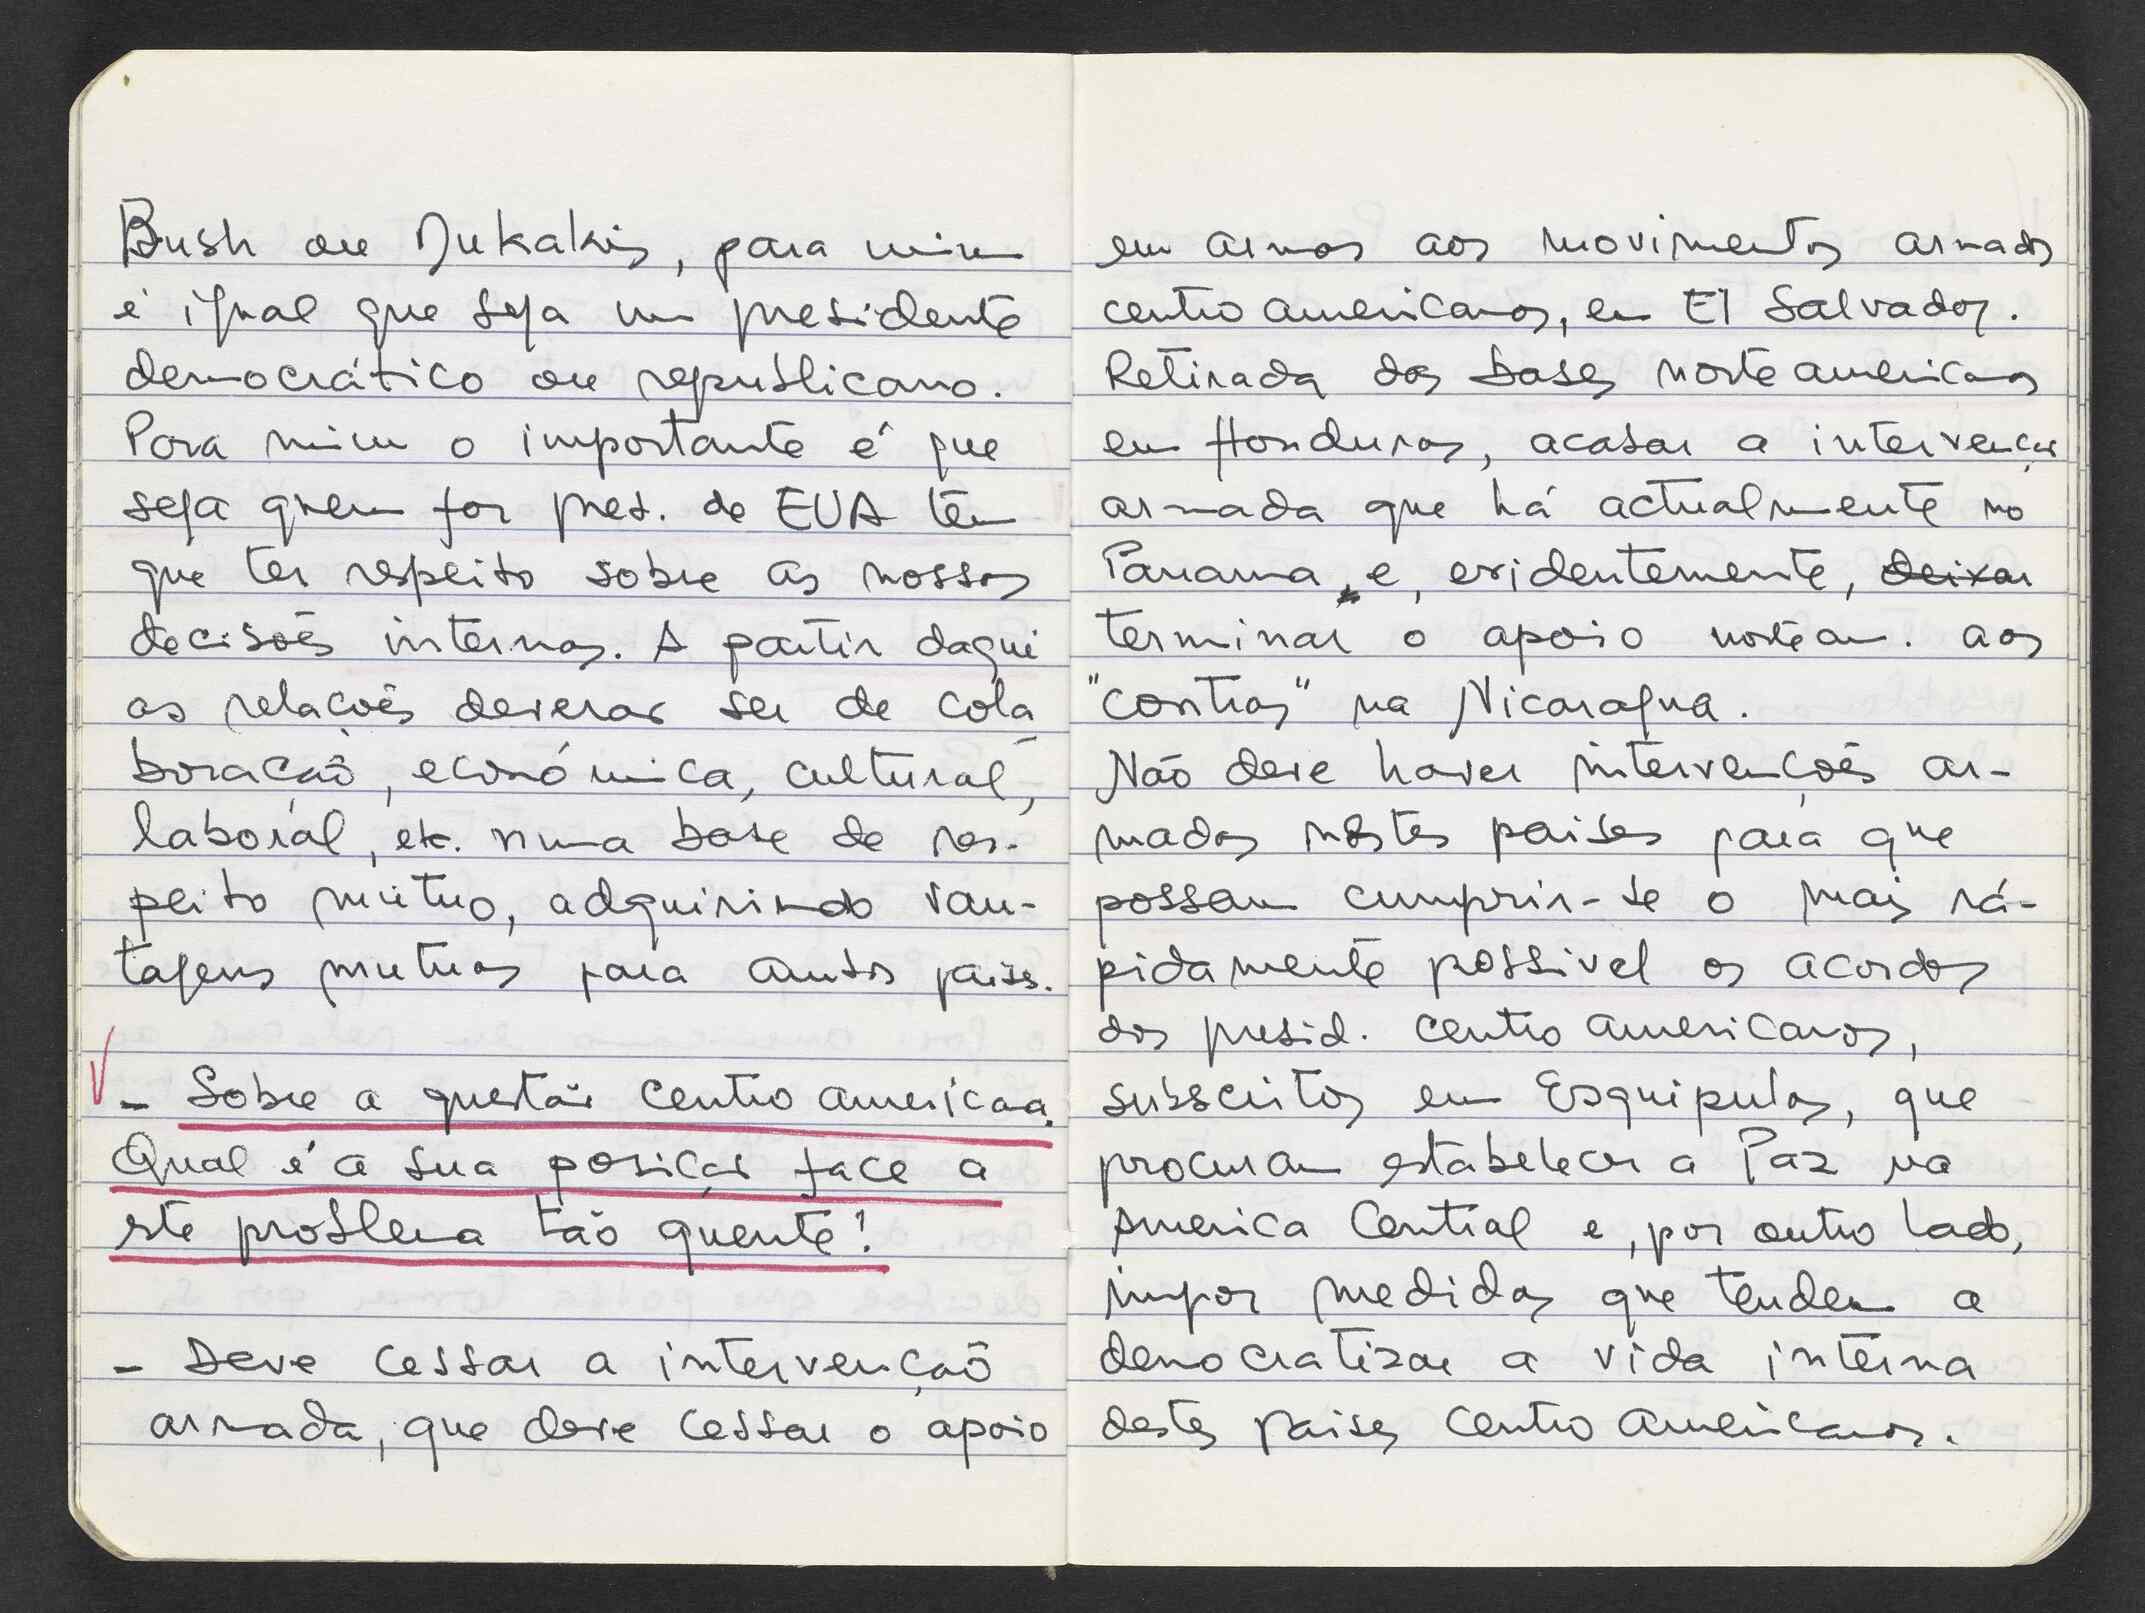 Bush ou Dukakis, para mim
é igual que seja um presidente
democrático ou republicano.
Para mim o importante é que
seja quem for pres. de EUA tem
que ter respeito sobre as nossas
decisões internas. A partir daqui
as relações deverão ser de cola
boração, económica, cultural,
laboral, etc. numa base de res-
peito mútuo, adquirindo van-
tagens mutuas para ambos países.
- Sobre a questão centro americana.
Qual é a sua posição face a
este problema tão quente?
- Deve cessar a intervenção
armada, que deve cessar o apoio
em armas aos movimentos armados
centro americanos, em El Salvador.
Retirada das bases norte americanas
em Honduras, acabar a intervenção
armada que há actualmente no
Panama, e, evidentemente, deixar
terminar o apoio norteam. aos
"contras" na Nicaragua.
Não deve haver intervenções ar-
madas nestes paises para que
possam cumprir-se o mais rá-
pidamente possivel os acordos
dos presid. centro americanos,
subscritos em Esquipulas, que
procuram estabelecer a Paz na
America Central e, por outro lado,
impor medidas que tendem a
democratizar a vida interna
destes paises centro americanos.